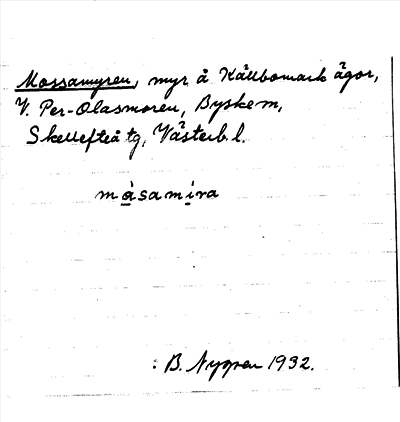 Mossamyren, myr å Källbomark ägor,
V. Per-Olasmoren, Byske m,
Skellefteå tg, Västerb. l.
måsamira
: B. Nygren 1932.